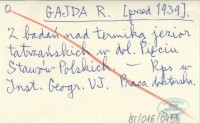 GAJDA R. [pred 1939].
Z badań nad termiką jezior
tatrzańskich w dol. Pięciu
Stawów Polskich. — Rps w
Inst. Geogr. UJ. Praca doktorska.